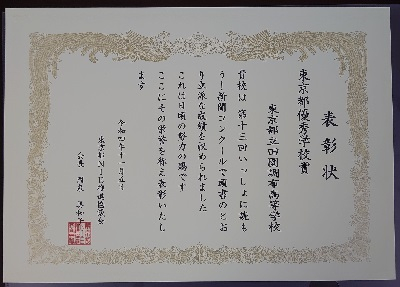 表彰状
東京都優秀学校賞
東京都立田園調布高等学校
貴校は 第十三回いっしょに読も
う!新聞コンクールで頭書のとお
り立派な成績を収められました
これは日頃の努力の賜です
ここにその栄誉を称え表彰いたし
ます
令和四年十一月
東京都NIE推進協議会
会長